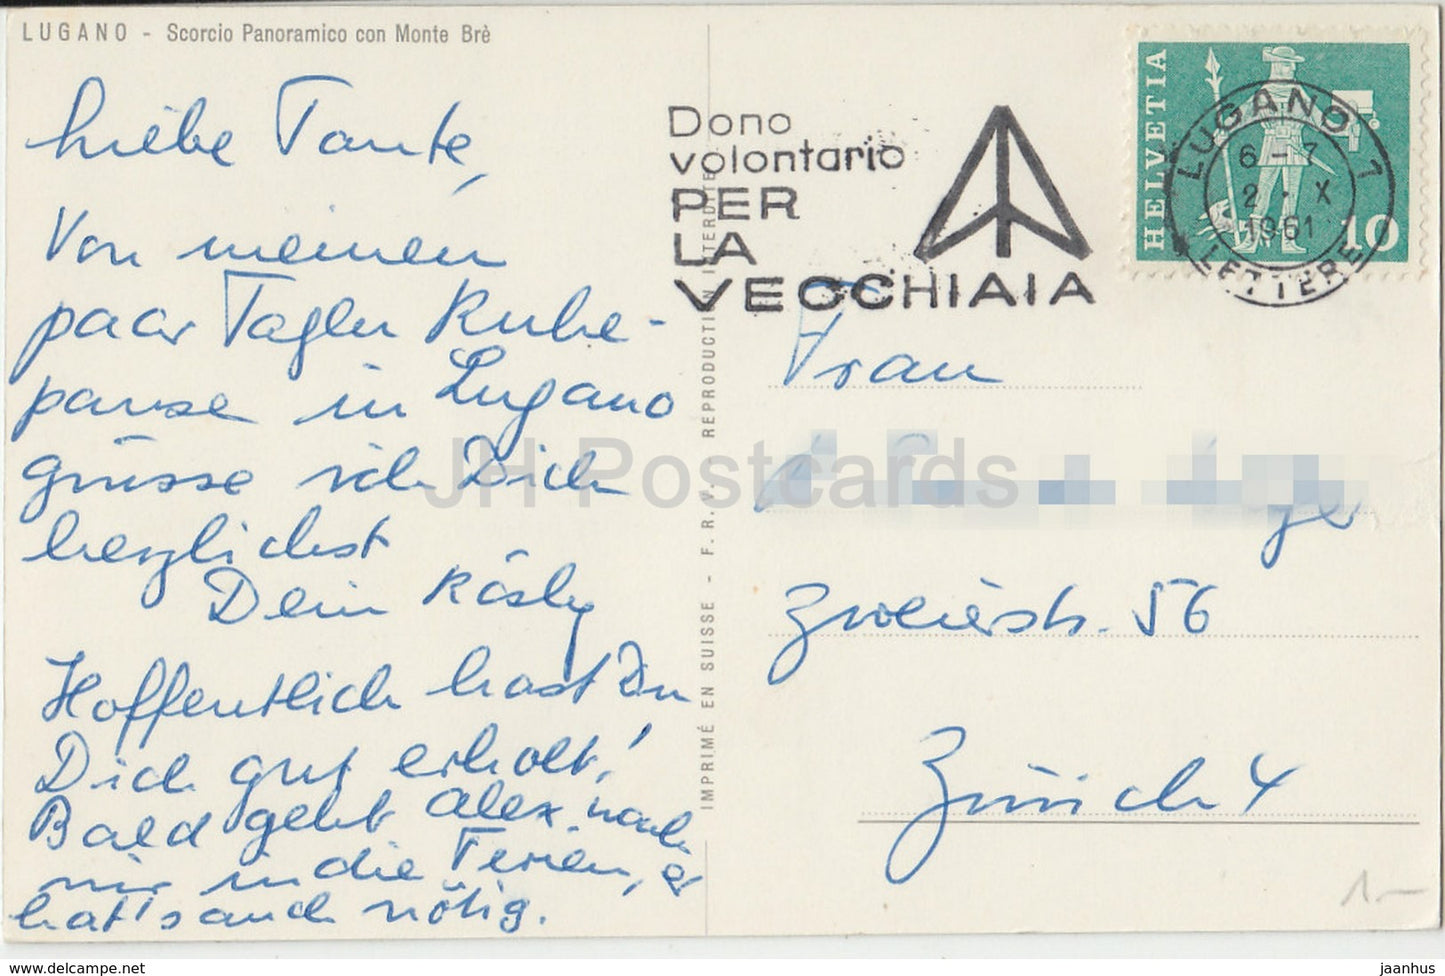 LUGANO - Scorcio Panoramico con Monte Brè
Liebe Tante,
Von meinen
paar Tagen Ruhe-
pause in Lugano
grüsse ich Dich
herzlichst
Dein Rösly
Hoffentlich hast Du
Dich gut erholt!
Bald geht Alex nach
mir in die Ferien, er
hat's auch nötig.
IMPRIMÉ EN SUISSE - F. R. V. REPRODUCTION INTERDITE
Dono
volontario
PER
LA
VECCHIAIA
HELVETIA
10
LUGANO 1
6-7
2.X
1961
LETTERE
Frau
Zweierstr. 56
Zürich 4
1.-
JH Postcards
www.delcampe.net
jaanhus